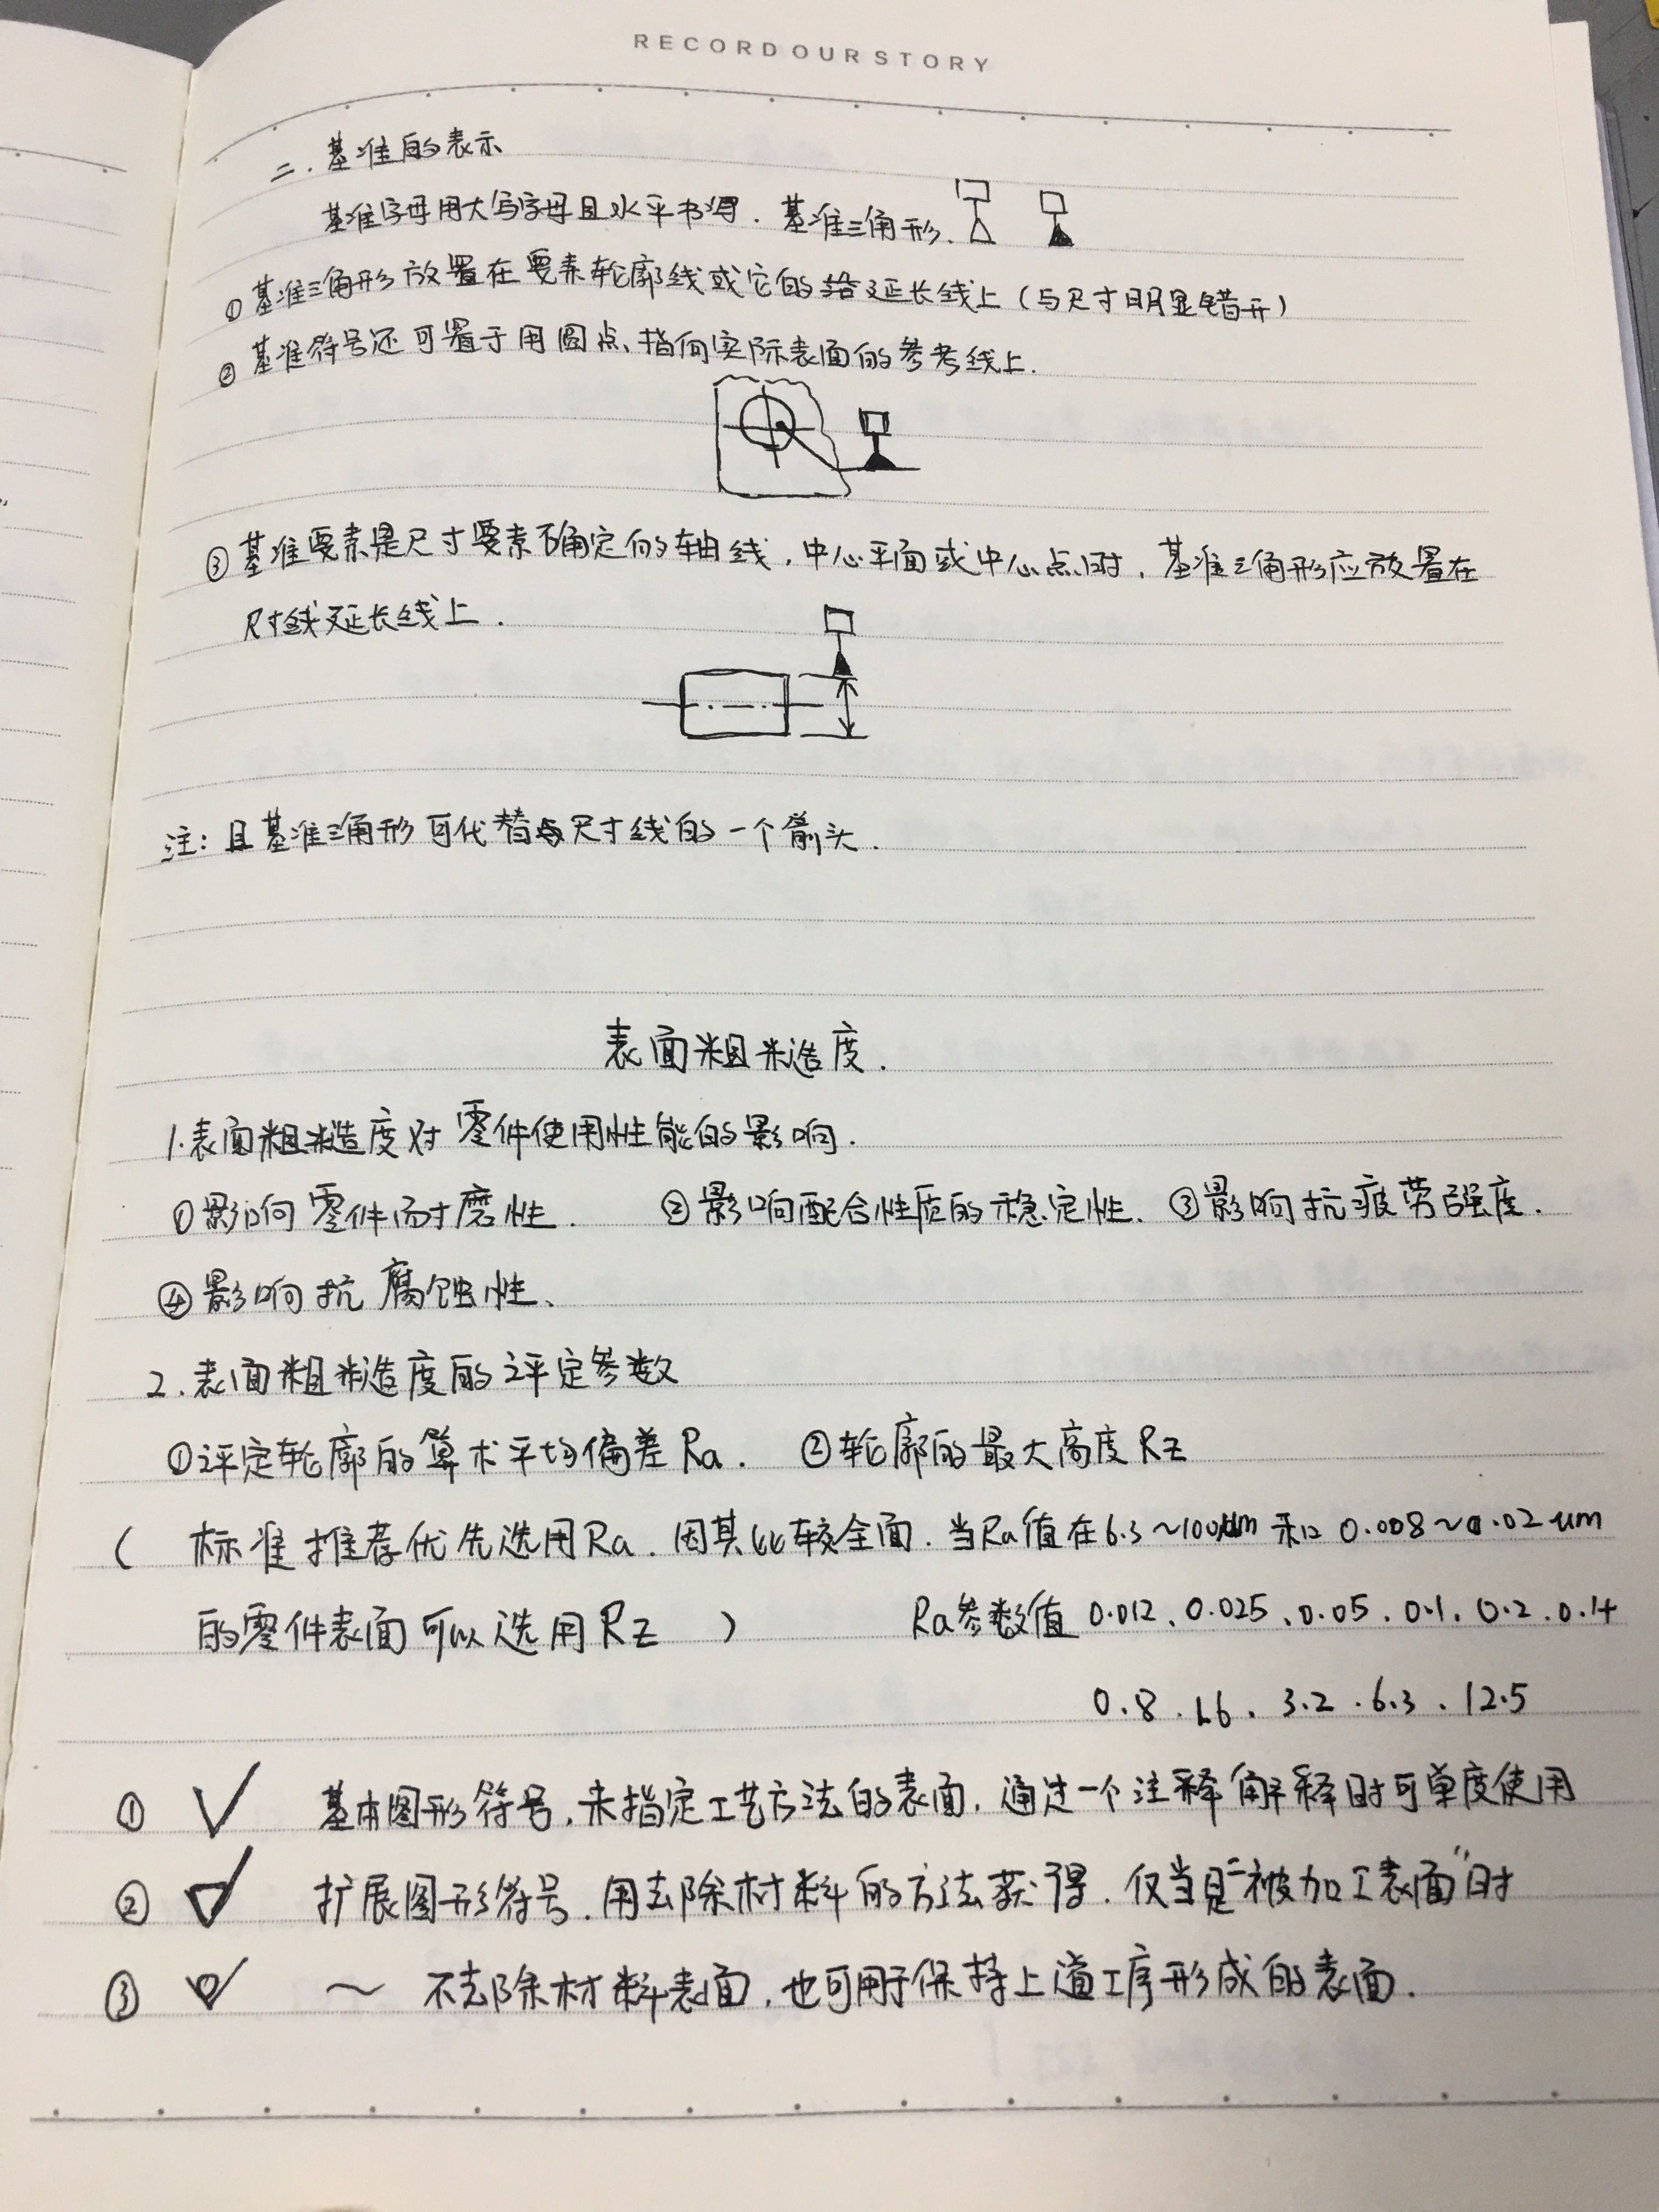 RECORD OUR STORY
二. 基准的表示
基准字母用大写字母且水平书写. 基准三角形、
① 基准三角形放置在要素轮廓线或它的延长线上 (与尺寸明显错开)
② 基准符号还可置于用圆点、指向实际表面的参考线上.
③ 基准要素是尺寸要素确定的轴线, 中心平面或中心点时, 基准三角形应放置在
尺寸线延长线上.
注: 且基准三角形可代替尺寸线的一个箭头.
表面粗糙度.
1. 表面粗糙度对零件使用性能的影响.
① 影响零件耐磨性. ② 影响配合性质的稳定性. ③ 影响抗疲劳强度.
④ 影响抗腐蚀性、
2. 表面粗糙度的评定参数
① 评定轮廓的算术平均偏差 Ra. ② 轮廓的最大高度 Rz
( 标准推荐优先选用Ra. 因其比较全面. 当Ra值在6.3~100μm 和 0.008~0.02 um
的零件表面可以选用 Rz ) Ra参数值 0.012、0.025、0.05、0.1、0.2、0.4
0.8、1.6、3.2、6.3、12.5
① 基本图形符号, 未指定工艺方法的表面, 通过一个注释解释时可单度使用
② 扩展图形符号. 用去除材料的方法获得. 仅当是"被加工表面"时
③ ~ 不去除材料表面, 也可用于保持上道工序形成的表面.